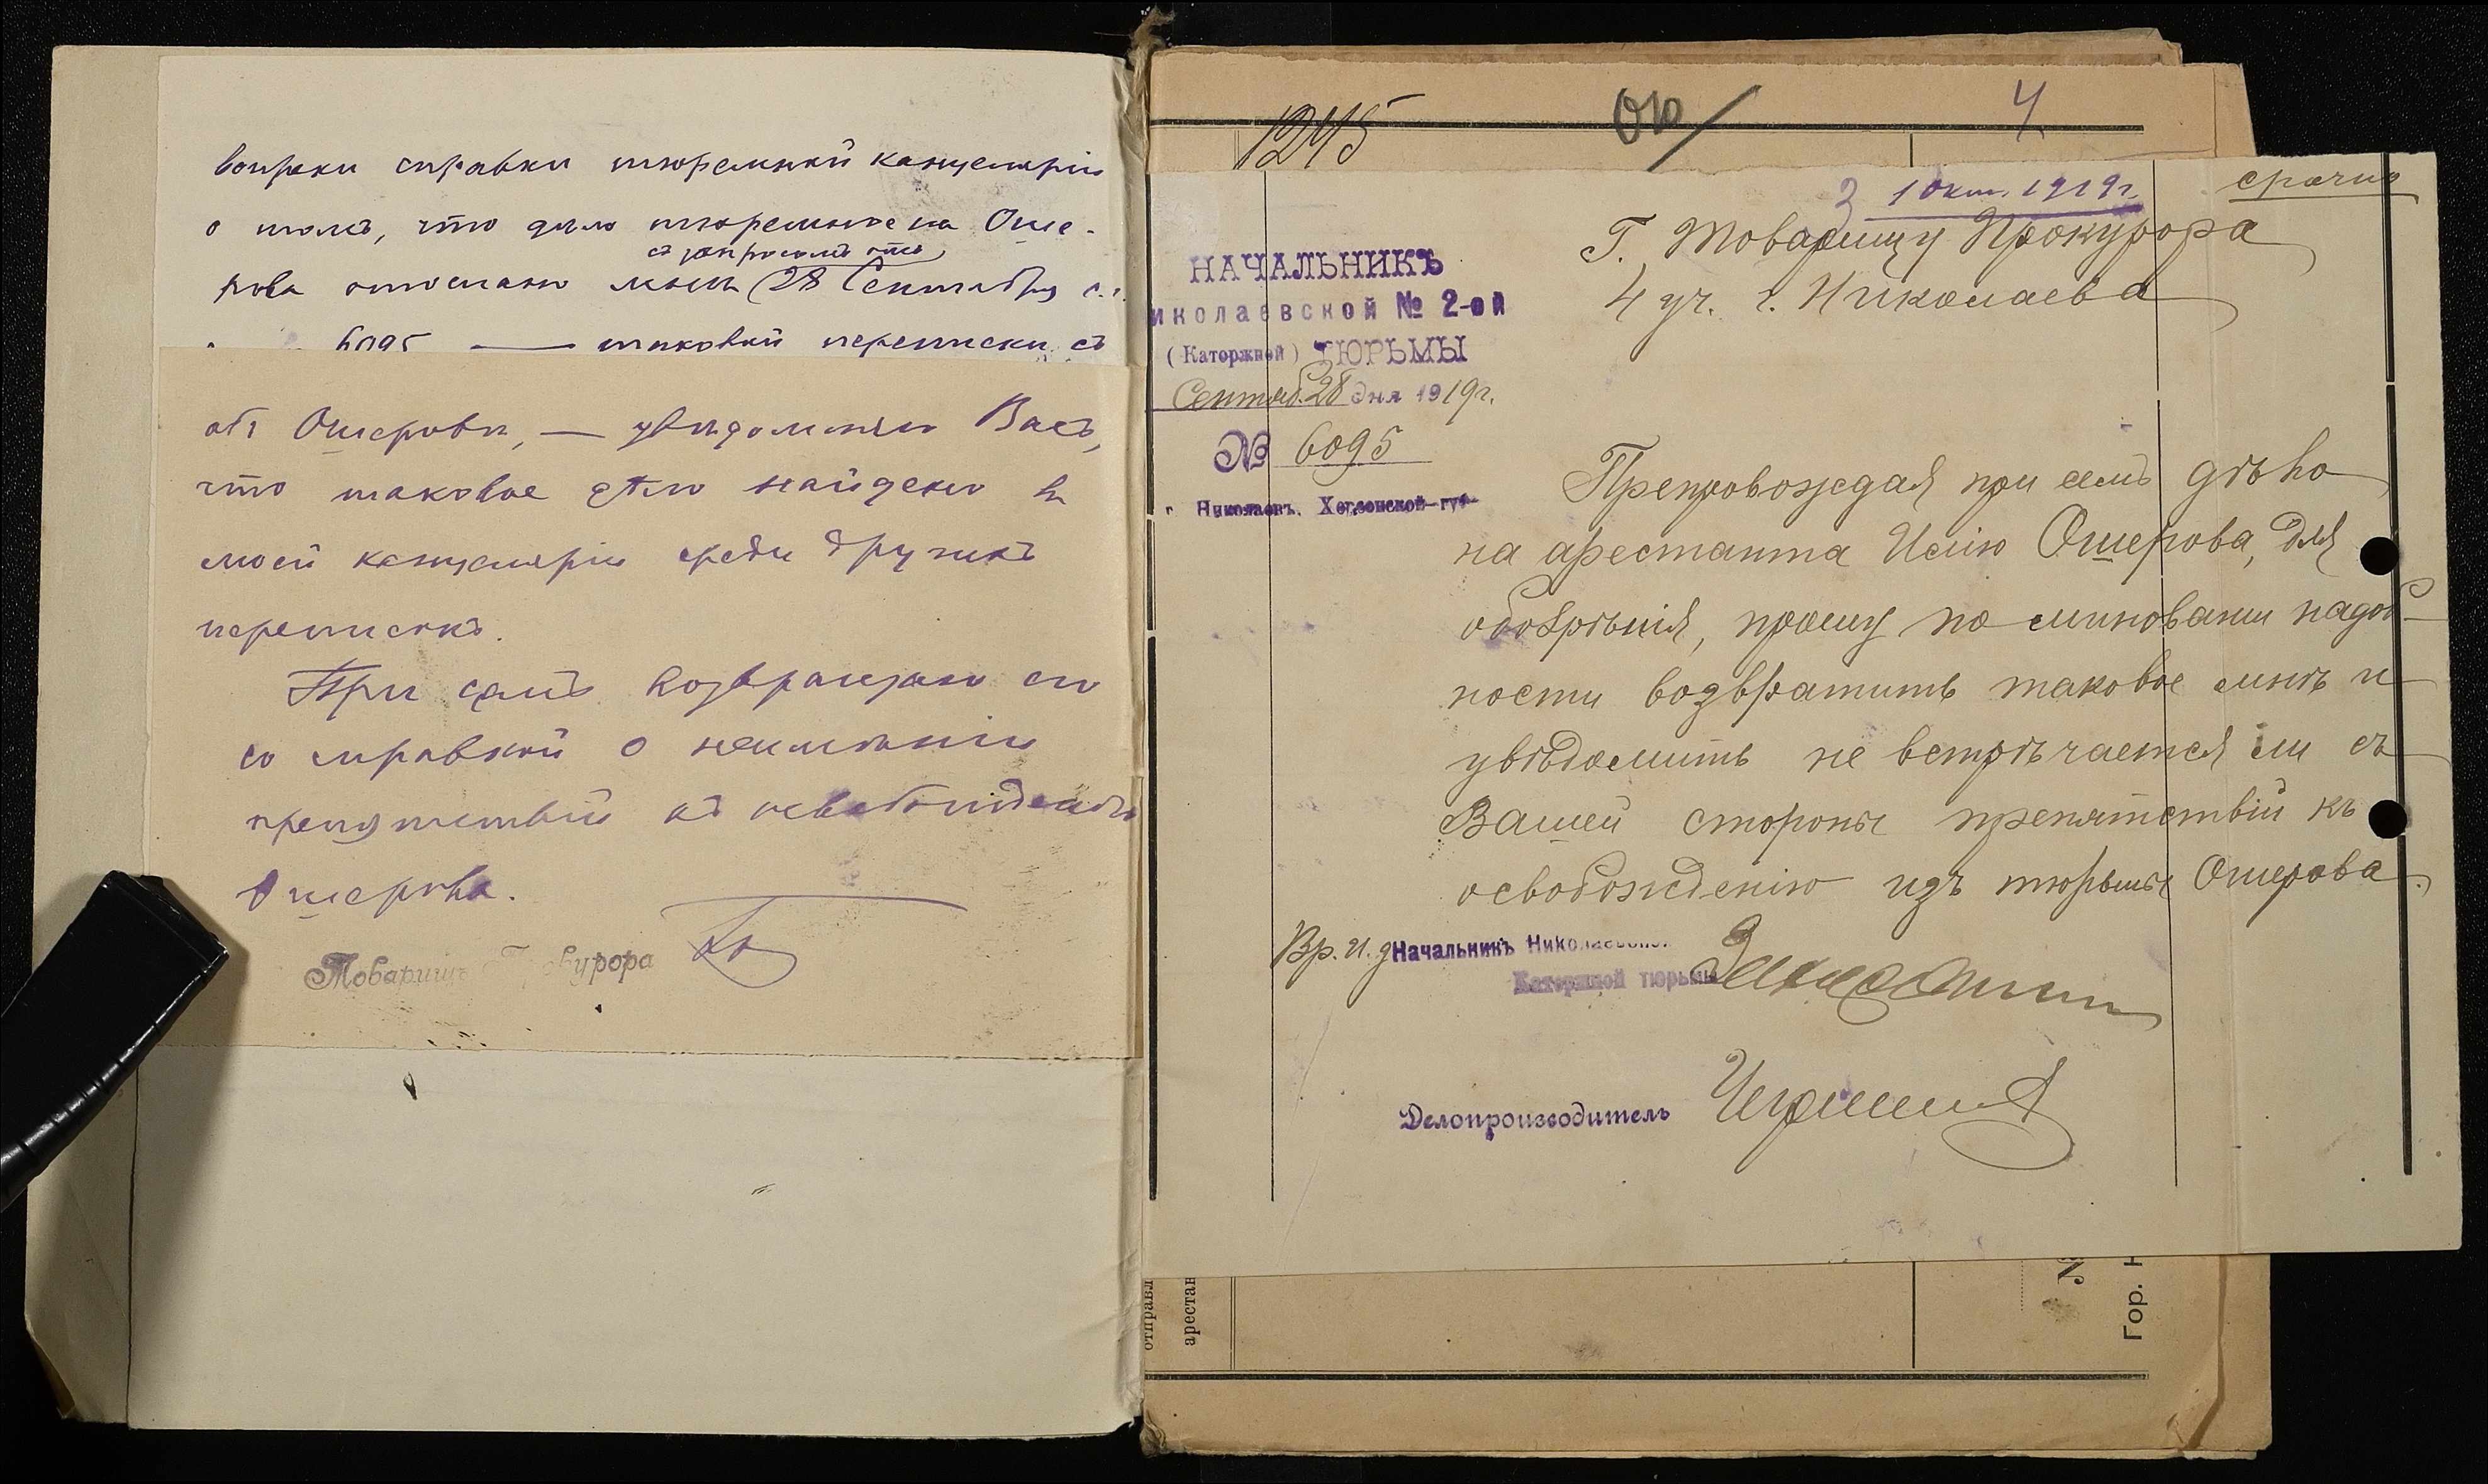 вопреки справки тюремной канцеляріи
о томъ, что дѣло тюремное на Оше-
рова отослано мнѣ съ запросомъ отъ 28 Сентября с.г.
6095 — таковой переписки съ
объ Ошеровѣ, — увѣдомляю Васъ,
что таковое дѣло найдено въ
моей канцеляріи среди другихъ
переписокъ.
При семъ возвращаю его
со справкой о неимѣніи
препятствій къ освобожденію
Ошерова.
Товарищъ Прокурора
1245
4
3 1 Окт. 1919 г.
срочно
НАЧАЛЬНИКЪ
иколаевской № 2-ой
(Каторжной) ТЮРЬМЫ
Сентяб. 28 дня 1919 г.
№ 6095
г. Николаевъ, Херсонской губ.
Г. Товарищу Прокурора
4 уч. г. Николаева
Препровождая при семъ дѣло
на арестанта Исію Ошерова, для
обозрѣнія, прошу по минованіи надоб-
ности возвратить таковое мнѣ и
увѣдомить не встрѣчается ли съ
Вашей стороны препятствій къ
освобожденію изъ тюрьмы Ошерова.
Вр. и. д. Начальникъ Николаевской
Каторжной тюрьмы
Делопроизводитель
отправл
арестан
№
Гор. Н